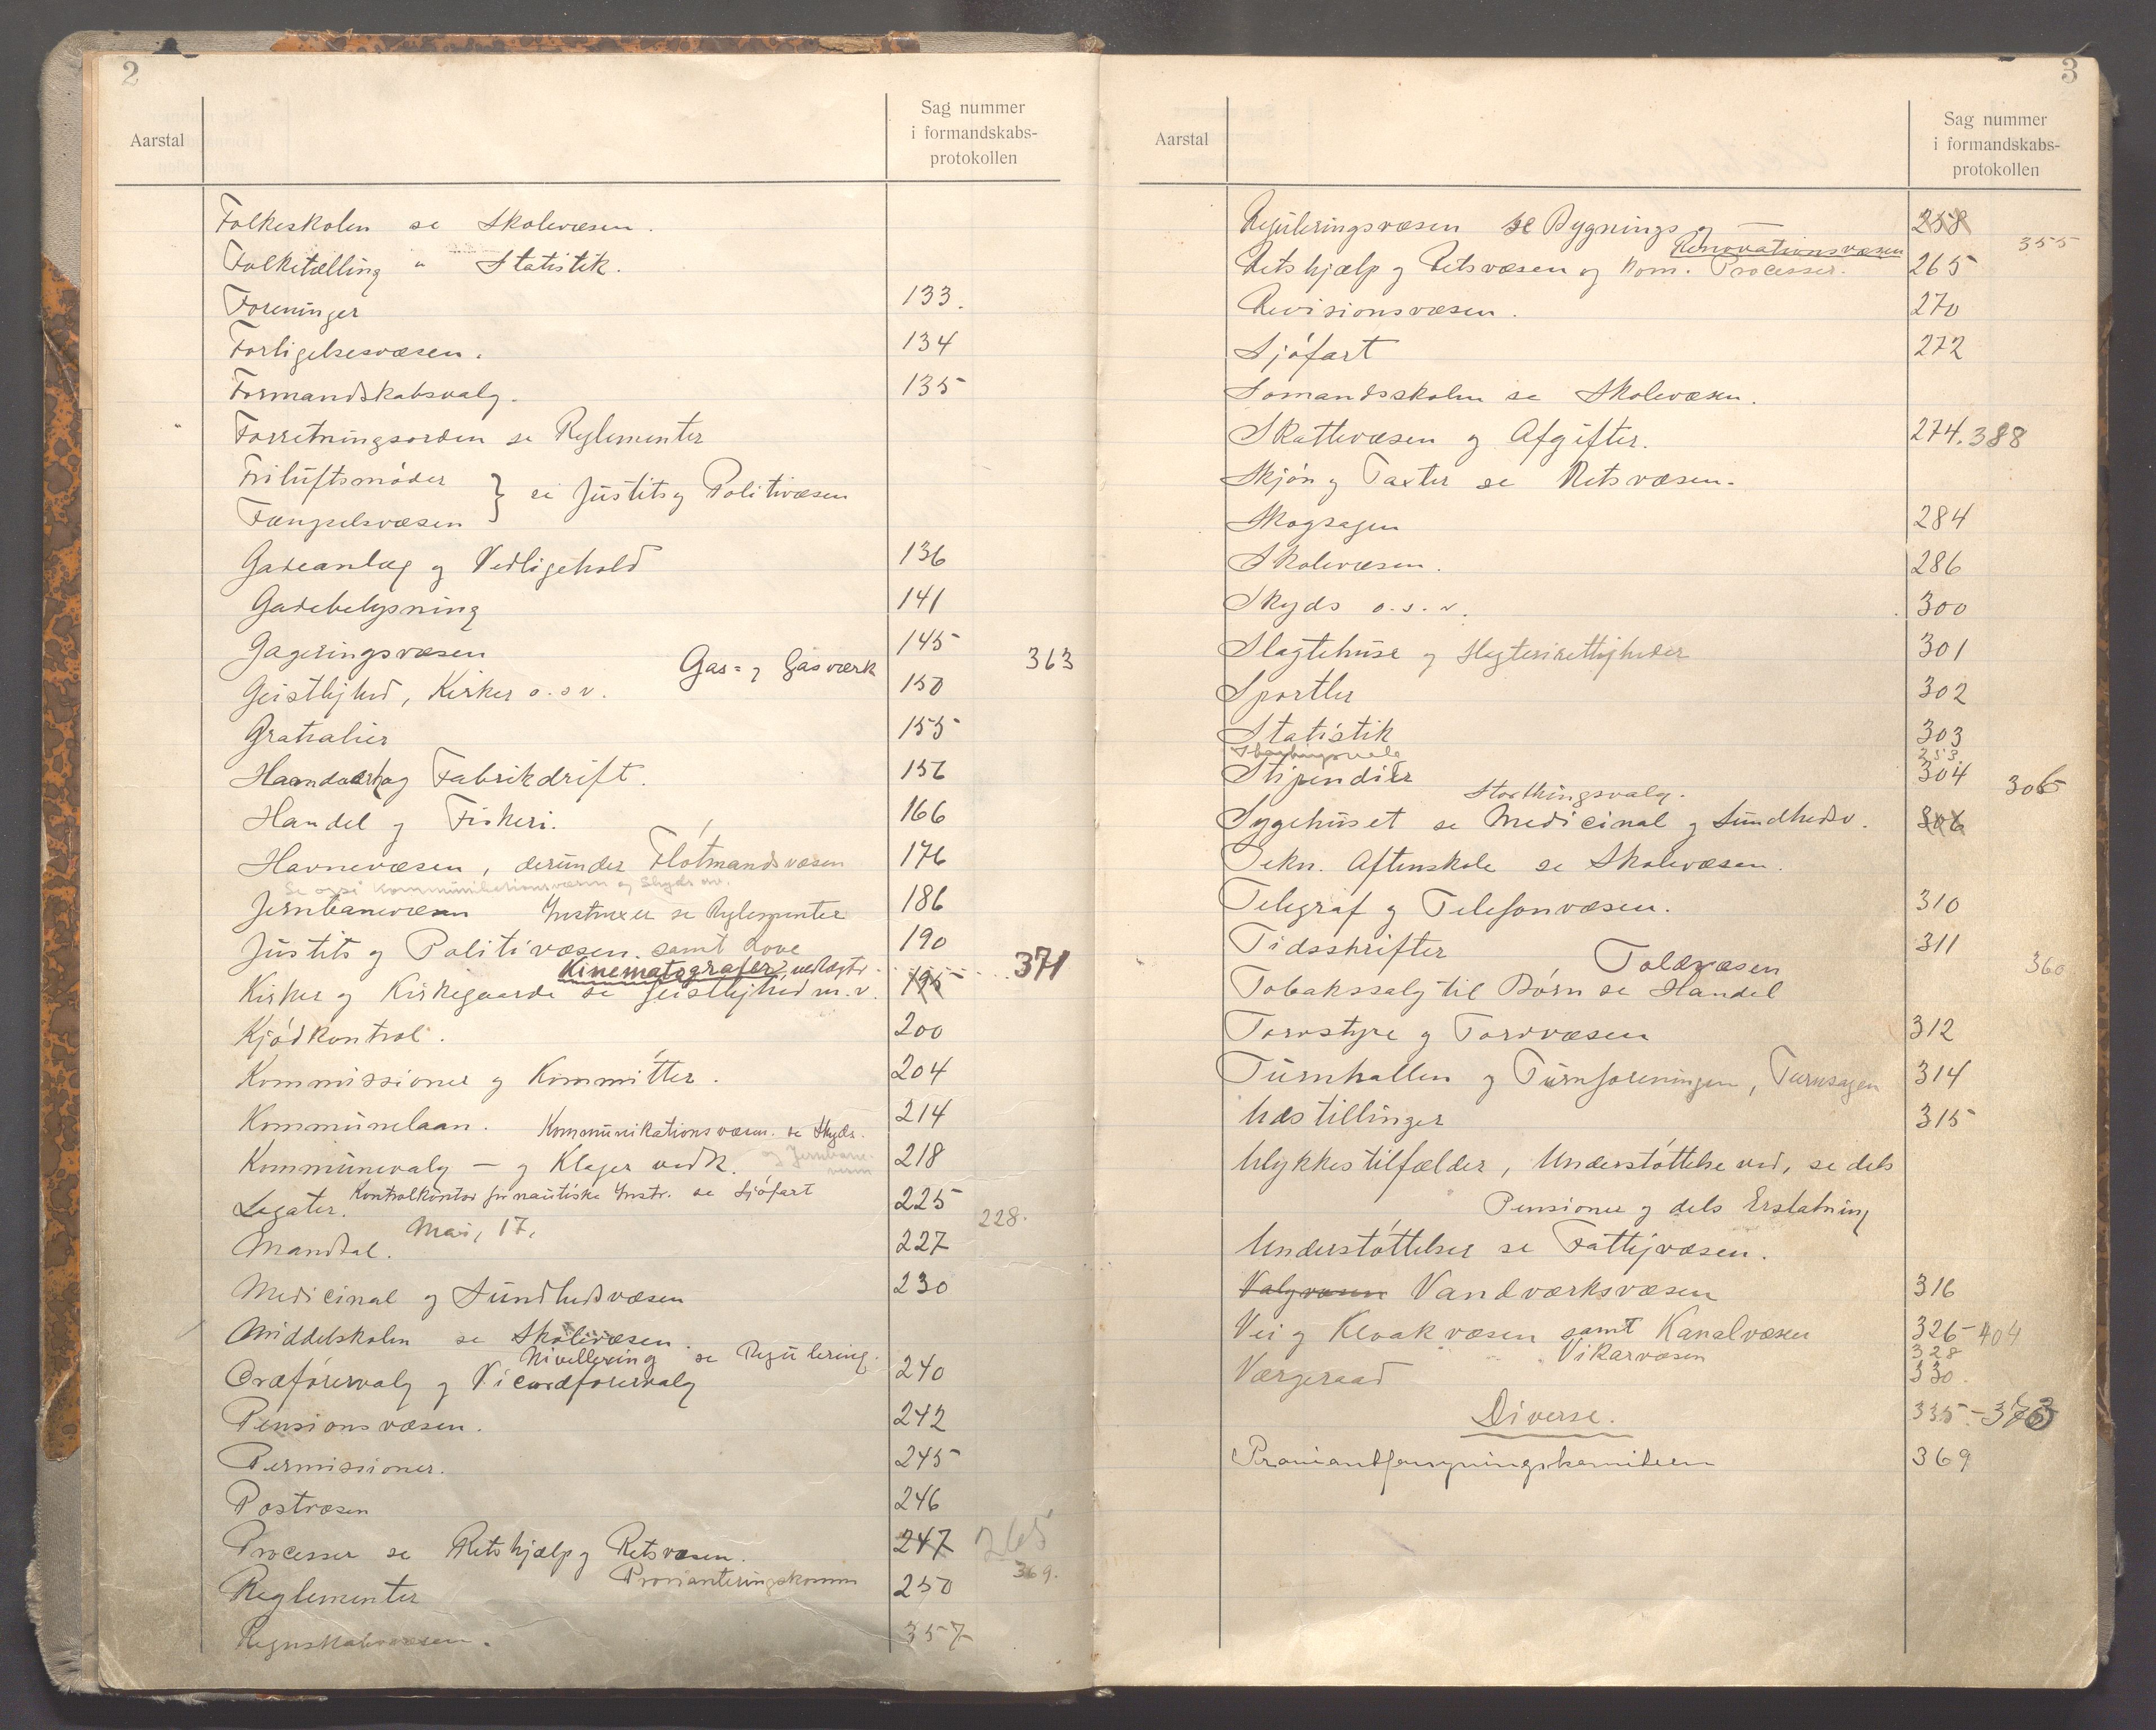 2
Aarstal
Sag nummer
i formandskabs-
protokollen
Folkeskolen se Skolevæsen.
Folketælling " Statistik.
Foreninger 133.
Forligelsesvæsen. 134
Formandskabsvalg. 135
Forretningsorden se Reglementer
Friluftsmøder
Fængselsvæsen } se Justits og Politivæsen
Gadeanlæg og Vedligehold 136
Gadebelysning 141
Gageringsvæsen 145
Gas= og Gasværk 363
Geistlighed, Kirker o.s.v. 150
Gratialier 155
Haandværk og Fabrikdrift. 156
Handel og Fiskeri. 166
Havnevæsen, derunder Flötmandsvæsen 176
Se også Kommunikationsvæsen og Skyds osv.
Jernbanevæsen Instruxer se Reglementer 186
Justits og Politivæsen. samt Love 190
Kinematografer, vedtægter 371
Kirker og Kirkegaarde se Geistlighed m.v. 195
Kjödkontrol. 200
Kommissioner og Kommitter. 204
Kommunelaan. Kommunikationsvæsen. se Skyds. 214
og Jernbane-
væsen
Kommunevalg – og Klager vedk. 218
Kontrolkontor for nautiske Instr. se Sjöfart
Legater. 225
Mai, 17, 228.
Mandtal. 227
Medicinal og Sundhedsvæsen 230
Middelskolen se Skolevæsen.
Nivellering se Regulering.
Ordförervalg og Viceordförervalg 240
Pensionsvæsen. 242
Permissioner. 245
Postvæsen 246
Processer se Retshjælp og Retsvæsen. 247 265
Provianteringskomm 369.
Reglementer 250
Regnskabsvæsen. 357
3
Aarstal
Sag nummer
i formandskabs-
protokollen
Reguleringsvæsen se Bygnings og — 258
Renovationsvæsen 355
Retshjælp og Retsvæsen og kom. Processer. 265
Revisionsvæsen. 270
Sjöfart 272
Sömandsskolen se Skolevæsen.
Skattevæsen og Afgifter. 274. 388
Skjön og Taxter se Retsvæsen.
Skogsagen 284
Skolevæsen. 286
Skyds o.s.v. 300
Slagtehuse og Slagterirettigheder 301
Sportler 302
Statistik 303
Storthingsvalg 353
Stipendier 304
Storthingsvalg. 306
Sygehuset se Medicinal og Sundhedsv. 306
Tekn. Aftenskole se Skolevæsen.
Telegraf og Telefonvæsen. 310
Tidsskrifter 311
Toldvæsen 360
Tobakssalg til Börn se Handel
Torvstyre og Torvvæsen 312
Turnhallen og Turnforeningen, Turnsagen 314
Udstillinger 315
Ulykkestilfælder, Understöttelse ved, se dels
Pensioner og dels Erstatning
Understöttelser se Fattigvæsen.
Valgvæsen Vandværksvæsen 316
Vei og Kloakvæsen samt Kanalvæsen 326-404
Vikarvæsen 328
Værgeraad 330.
Diverse. 335-373
Proviantforsyningskomiteen 369